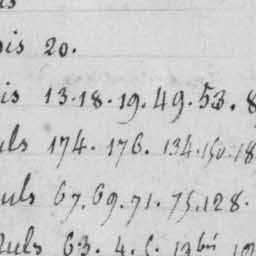 is
is 20.
is 13.18.19.49.53.8
uls 174. 176. 134.150.18
uls 67.69.71.75.128.
uls 63. 4. 13bis